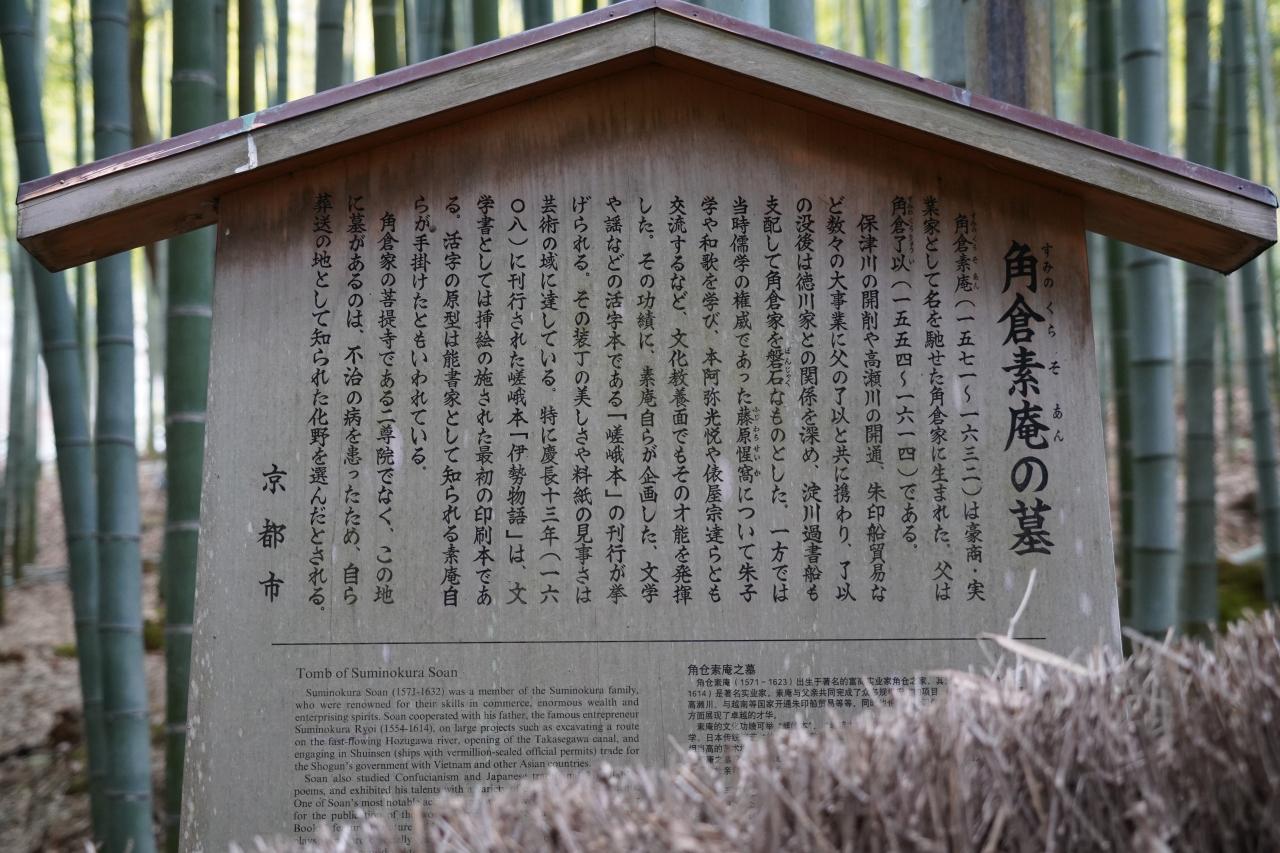 角倉素庵の墓
すみのくらそあん
角倉素庵（一五七一〜一六三二）は豪商・実
業家として名を馳せた角倉家に生まれた。父は
角倉了以（一五五四〜一六一四）である。
保津川の開削や高瀬川の開通、朱印船貿易な
ど数々の大事業に父の了以と共に携わり、了以
の没後は徳川家との関係を深め、淀川過書船も
支配して角倉家を磐石なものとした。一方では
当時儒学の権威であった藤原惺窩について朱子
学や和歌を学び、本阿弥光悦や俵屋宗達らとも
交流するなど、文化教養面でもその才能を発揮
した。その功績に、素庵自らが企画した、文学
や謡などの活字本である「嵯峨本」の刊行が挙
げられる。その装丁の美しさや料紙の見事さは
芸術の域に達している。特に慶長十三年（一六
〇八）に刊行された嵯峨本「伊勢物語」は、文
学書としては挿絵の施された最初の印刷本であ
る。活字の原型は能書家として知られる素庵自
らが手掛けたともいわれている。
角倉家の菩提寺である二尊院でなく、この地
に墓があるのは、不治の病を患ったため、自ら
葬送の地として知られた化野を選んだとされる。
京都市
Tomb of Suminokura Soan
Suminokura Soan (1571-1632) was a member of the Suminokura family,
who were renowned for their skills in commerce, enormous wealth and
enterprising spirits. Soan cooperated with his father, the famous entrepreneur
Suminokura Ryoi (1554-1614), on large projects such as excavating a route
on the fast-flowing Hozugawa river, opening of the Takasegawa canal, and
engaging in Shuinsen (ships with vermillion-sealed official permits) trade for
the Shogun's government with Vietnam and other Asian countries.
Soan also studied Confucianism and Japanese
poems, and exhibited his talents with a
One of Soan's most notable
for the
角仓素庵之墓
角仓素庵（1571－1623）出生于著名的富商实业家角仓之家。其
1614）是著名实业家。素庵与父亲共同完成了众多规
高濑川、与越南等国家开通朱印船贸易等等，同时
方面展现了卓越的才华。